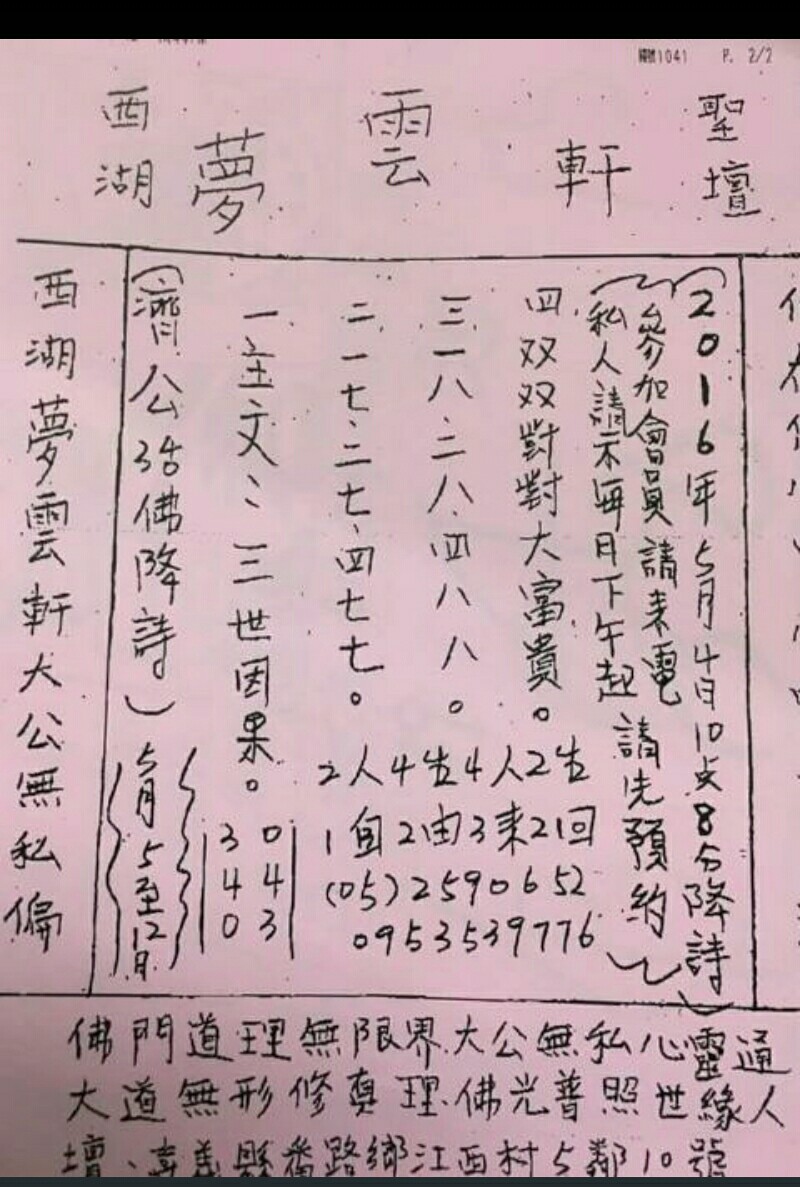 1041 P. 2/2
西湖夢雲軒聖壇
(2016年5月4日10点8分降詩)
(參加會員請來電
私人請示每月下午起請先預約)
四双双對對大富貴。
三一八、二八、四八八。
二一七、二七、四七七。
一主文、三世因果。
(濟公活佛降詩)
5月5至12月
2人4生4人2生
1自2由3來21回
(05)2590652
0953539776
30
44
03
西湖夢雲軒大公無私偏
佛門道理無限界大公無私心靈通
大道無形修真理佛光普照世緣人
壇、嘉義縣番路鄉江西村5鄰10號